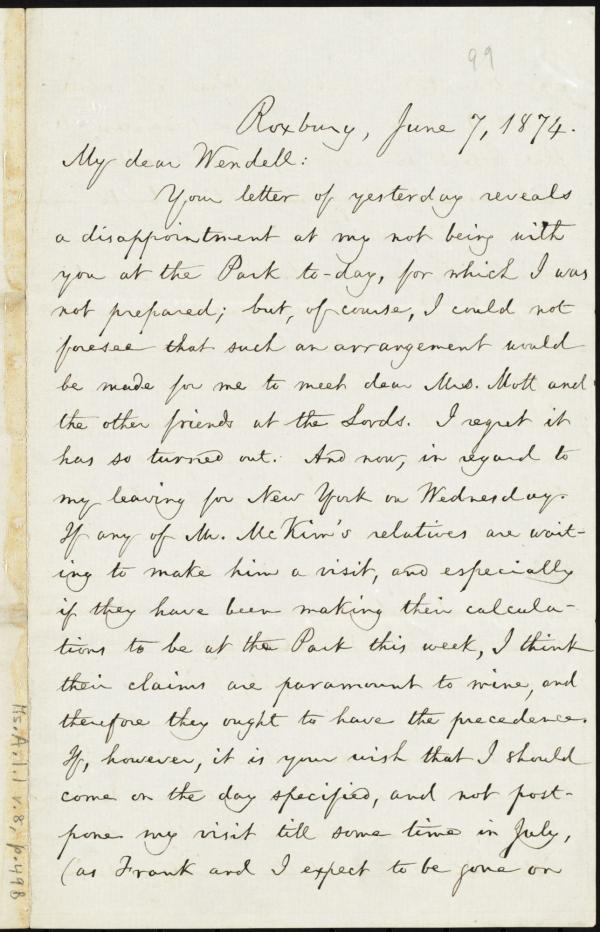 99
Roxbury, June 7, 1874.
My dear Wendell:
Your letter of yesterday reveals
a disappointment at my not being with
you at the Park to-day, for which I was
not prepared; but, of course, I could not
foresee that such an arrangement would
be made for me to meet dear Mrs. Mott and
the other friends at the Lords. I regret it
has so turned out. And now, in regard to
my leaving for New York on Wednesday.
If any of Mr. McKim's relatives are wait-
ing to make him a visit, and especially
if they have been making their calcula-
tions to be at the Park this week, I think
their claims are paramount to mine, and
therefore they ought to have the precedence.
If, however, it is your wish that I should
come on the day specified, and not post-
pone my visit till some time in July,
(as Frank and I expect to be gone on
Ms. A. 1. 1 v. 8, p. 49B